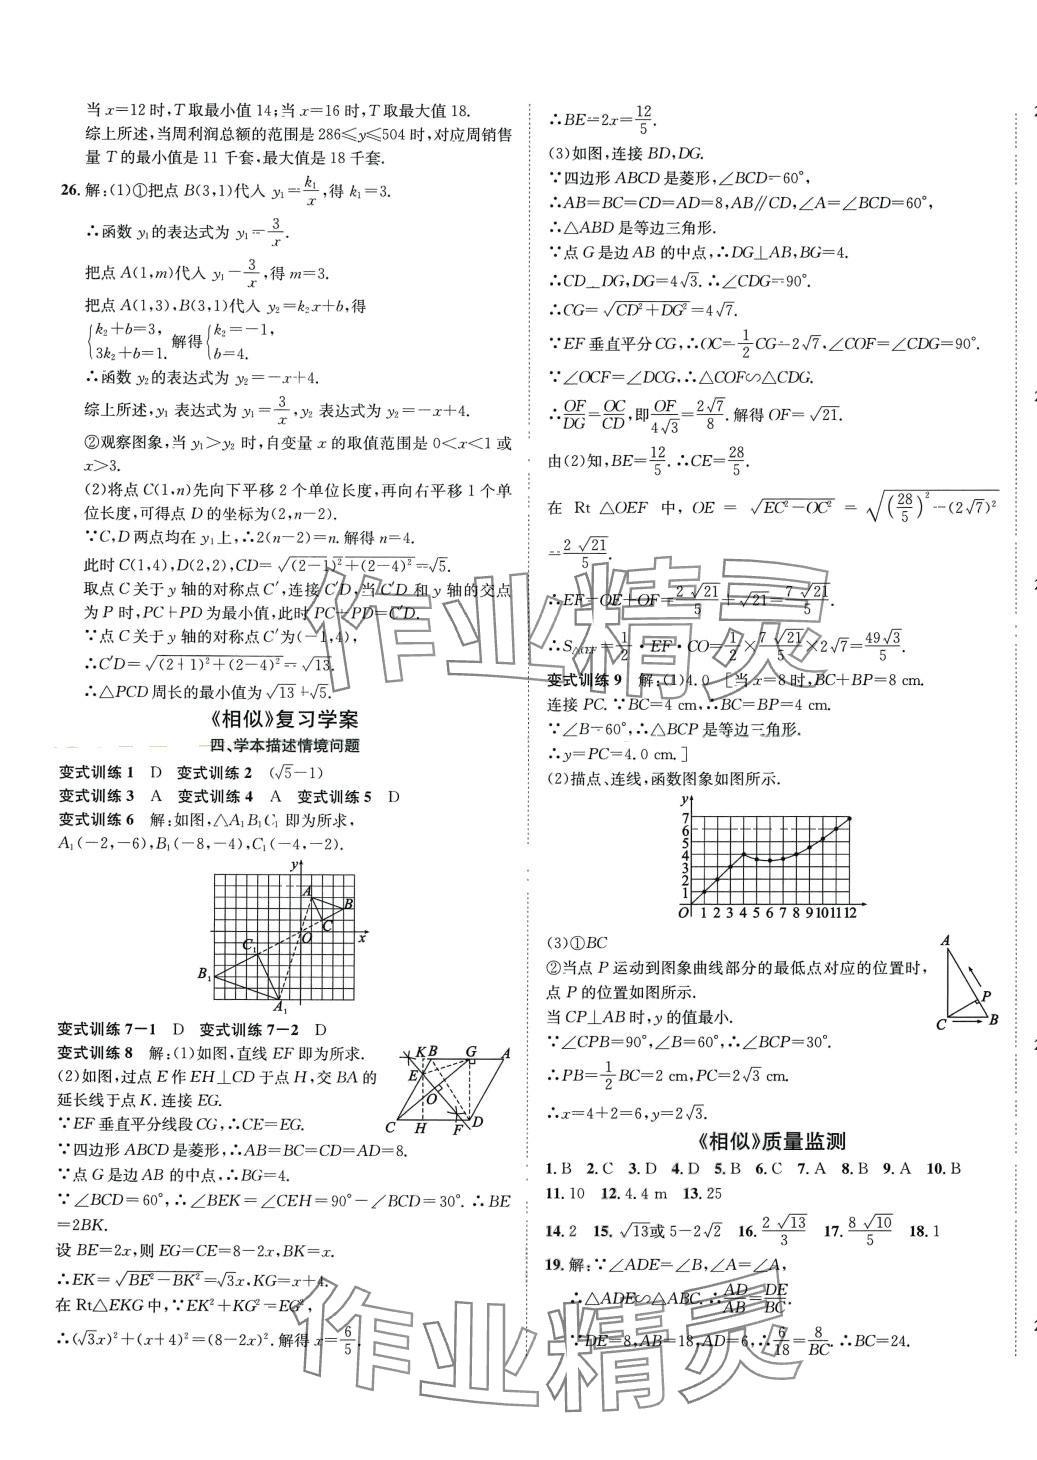 当 x=12 时,T 取最小值 14;当 x=16 时,T 取最大值 18.
综上所述,当周利润总额的范围是 286≤y≤504 时,对应周销售
量 T 的最小值是 11 千套,最大值是 18 千套.
26. 解:(1)①把点 B(3,1)代入 y₁=k₁/x,得 k₁=3.
∴函数 y₁的表达式为 y₁=3/x.
把点 A(1,m)代入 y₁=3/x,得 m=3.
把点 A(1,3),B(3,1)代入 y₂=k₂x+b,得
{k₂+b=3, 3k₂+b=1. 解得{k₂=-1, b=4.
∴函数 y₂的表达式为 y₂=-x+4.
综上所述,y₁ 表达式为 y₁=3/x,y₂ 表达式为 y₂=-x+4.
②观察图象,当 y₁>y₂ 时,自变量 x 的取值范围是 0<x<1 或
x>3.
(2)将点 C(1,n)先向下平移 2 个单位长度,再向右平移 1 个单
位长度,可得点 D 的坐标为(2,n-2).
∵C,D 两点均在 y₁上,∴2(n-2)=n. 解得 n=4.
此时 C(1,4),D(2,2),CD=√((2-1)²+(2-4)²)=√5.
取点 C 关于 y 轴的对称点 C′,连接 C′D,当 C′D 和 y 轴的交点
为 P 时,PC+PD 为最小值,此时 PC+PD=C′D.
∵点 C 关于 y 轴的对称点 C′为(-1,4),
∴C′D=√((2+1)²+(2-4)²)=√13.
∴△PCD 周长的最小值为 √13+√5.
《相似》复习学案
四、学本描述情境问题
变式训练 1 D 变式训练 2 (√5-1)
变式训练 3 A 变式训练 4 A 变式训练 5 D
变式训练 6 解:如图,△A₁B₁C₁ 即为所求,
A₁(-2,-6),B₁(-8,-4),C₁(-4,-2).
y A B C O x C₁ B₁ A₁
变式训练 7-1 D 变式训练 7-2 D
变式训练 8 解:(1)如图,直线 EF 即为所求.
(2)如图,过点 E 作 EH⊥CD 于点 H,交 BA 的
延长线于点 K. 连接 EG.
K B G A E O C H F D
∵EF 垂直平分线段 CG,∴CE=EG.
∵四边形 ABCD 是菱形,∴AB=BC=CD=AD=8.
∵点 G 是边 AB 的中点,∴BG=4.
∵∠BCD=60°,∴∠BEK=∠CEH=90°-∠BCD=30°. ∴BE
=2BK.
设 BE=2x,则 EG=CE=8-2x,BK=x.
∴EK=√(BE²-BK²)=√3x,KG=x+4.
在 Rt△EKG 中,∵EK²+KG²=EG²,
∴(√3x)²+(x+4)²=(8-2x)². 解得 x=6/5.
∴BE=2x=12/5.
(3)如图,连接 BD,DG.
∵四边形 ABCD 是菱形,∠BCD=60°,
∴AB=BC=CD=AD=8,AB∥CD,∠A=∠BCD=60°,
∴△ABD 是等边三角形.
∵点 G 是边 AB 的中点,∴DG⊥AB,BG=4.
∴CD⊥DG,DG=4√3. ∴∠CDG=90°.
∴CG=√(CD²+DG²)=4√7.
∵EF 垂直平分 CG,∴OC=1/2CG=2√7,∠COF=∠CDG=90°.
∵∠OCF=∠DCG,∴△COF∽△CDG.
∴OF/DG=OC/CD,即OF/4√3=2√7/8. 解得 OF=√21.
由(2)知,BE=12/5. ∴CE=28/5.
在 Rt △OEF 中, OE = √(EC²-OC²) = √((28/5)²-(2√7)²)
=2√21/5.
∴EF=OE+OF=2√21/5+√21=7√21/5.
∴S△CEF=1/2·EF·CO=1/2×7√21/5×2√7=49√3/5.
变式训练 9 解:(1)4.0 [当 x=8 时,BC+BP=8 cm.
连接 PC. ∵BC=4 cm,∴BC=BP=4 cm.
∵∠B=60°,∴△BCP 是等边三角形.
∴y=PC=4.0 cm.]
(2)描点、连线,函数图象如图所示.
y 7 6 5 4 3 2 1 O 1 2 3 4 5 6 7 8 9 10 11 12
(3)①BC
②当点 P 运动到图象曲线部分的最低点对应的位置时,
点 P 的位置如图所示.
当 CP⊥AB 时,y 的值最小.
∵∠CPB=90°,∠B=60°,∴∠BCP=30°.
∴PB=1/2BC=2 cm,PC=2√3 cm.
∴x=4+2=6,y=2√3.
A P C B
《相似》质量监测
1. B 2. C 3. D 4. D 5. B 6. C 7. A 8. B 9. A 10. B
11. 10 12. 4.4 m 13. 25
14. 2 15. √13或 5-2√2 16. 2√13/3 17. 8√10/5 18. 1
19. 解:∵∠ADE=∠B,∠A=∠A,
∴△ADE∽△ABC. ∴AD/AB=DE/BC.
∵DE=8,AB=18,AD=6,∴6/18=8/BC. ∴BC=24.
作业精灵
作业精灵